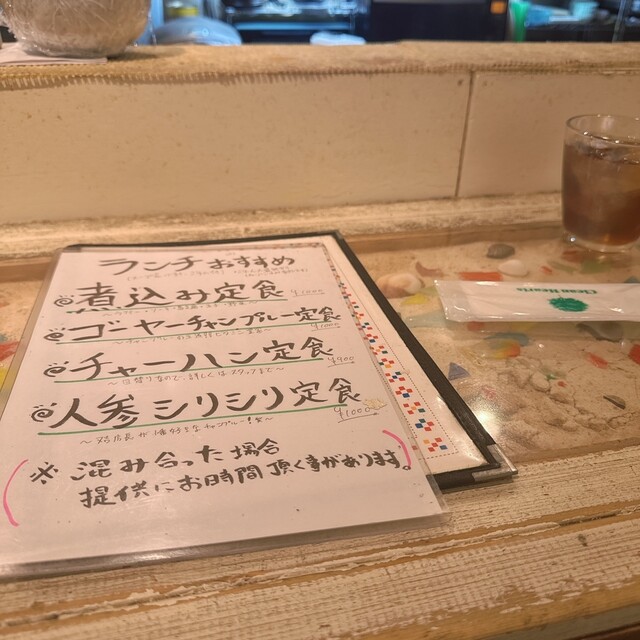 ランチおすすめ
煮込み定食 ¥1000
ゴーヤーチャンプルー定食 ¥1000
チャーハン定食 ¥900
〜日替りなので、詳しくはスタッフまで〜
人参シリシリ定食 ¥1000
※ 混み合った場合
提供にお時間頂く事があります。
Clean Hearts